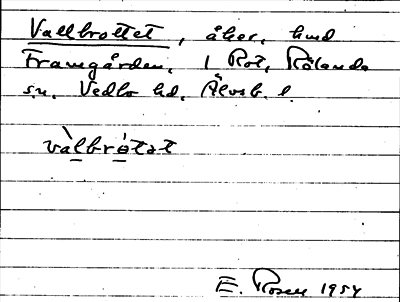 Vallbrottet, åker, und
Framgården, 1 Rot, Rölanda
sn. Vedbo hd. Älvsb. l.
vàlbrótat
E. Rosell 1954